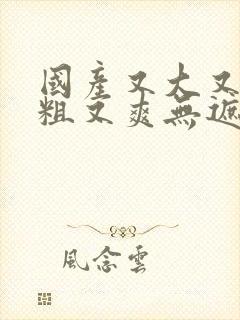 國產又大又
粗又爽無遮
風念雲